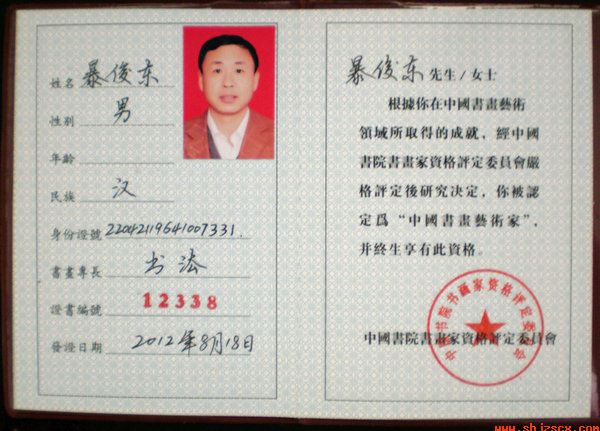 姓名 暴俊东
性别 男
年齡
民族 汉
身份證號 22042119641007331.
書畫專長 书法
證書編號 12338
發證日期 2012年8月18日
暴俊东 先生/女士
根據你在中國書畫藝術
領域所取得的成就，經中國
書院書畫家資格評定委員會嚴
格評定後研究決定，你被認
定爲“中國書畫藝術家”，
并終生享有此資格。
中國書院書畫家資格評定委員會
中国书院书画家资格评定委员会
www.shjzscx.com